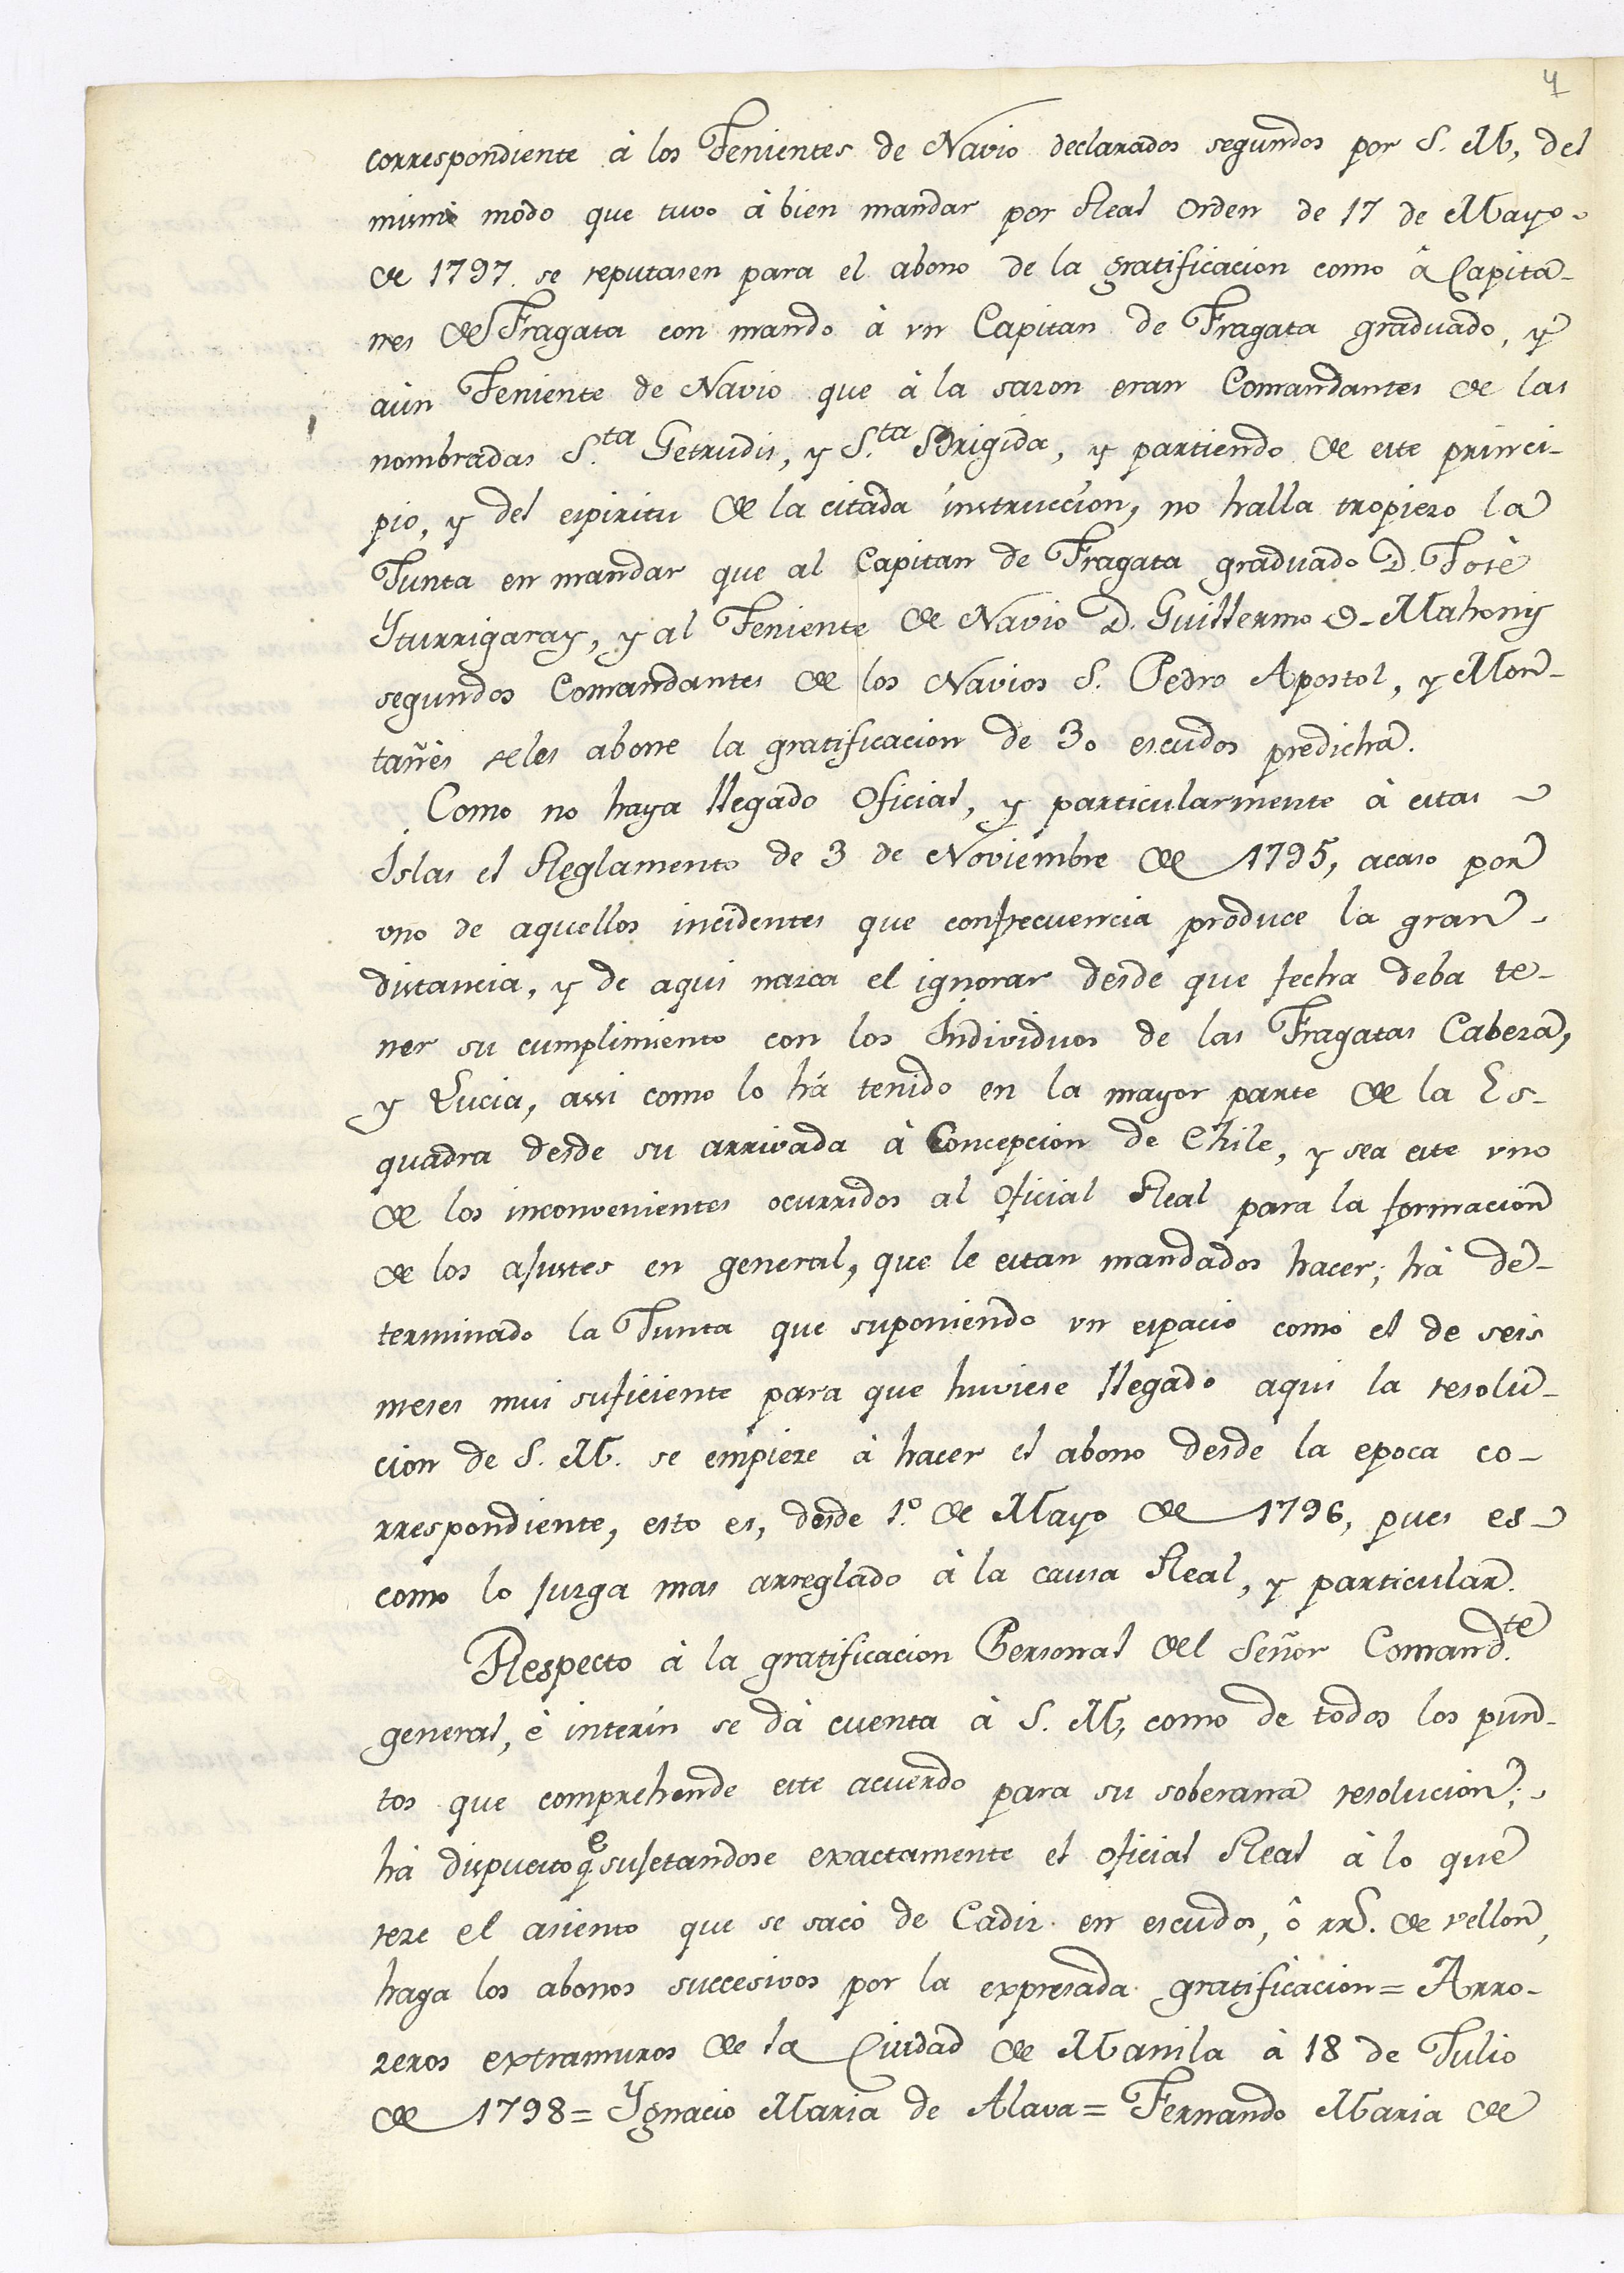 4
correspondiente à los Tenientes de Navio declarados segundos por S. M, del
mismo modo que tuvo à bien mandar por Real Orden de 17 de Mayo
de 1797. se reputasen para el abono de la gratificacion como â Capita-
nes de Fragata con mando à un Capitan de Fragata graduado, y
aùn Teniente de Navio que à la sazon eran Comandantes de las
nombradas S.ta Getrudis, y S.ta Brigida, y partiendo de este princi-
pio, y del espiritu de la citada instruccion, no halla tropiezo la
Junta en mandar que al Capitan de Fragata graduado D. Josè
Yturrigaray, y al Teniente de Navio D. Guillermo O-Mahony
segundos Comandantes de los Navios S. Pedro Apostol, y Mon-
tañès seles abone la gratificacion de 30 escudos predicha.
Como no haya llegado Oficial, y particularmente à estas
Islas el Reglamento de 3 de Noviembre de 1795, acaso por
uno de aquellos incidentes que confrecuencia produce la gran
distancia, y de aqui nazca el ignorar desde que fecha deba te-
ner su cumplimiento con los Individuos de las Fragatas Cabeza,
y Lucia, assi como lo há tenido en la mayor parte de la Es-
quadra desde su arrivada à Concepcion de Chile, y sea este uno
de los inconvenientes ocurridos al Oficial Real para la formacion
de los ajustes en general, que le estan mandados hacer; hà de-
terminado la Junta que suponiendo un espacio como el de seis
meses mui suficiente para que huviese llegado aqui la resolu-
cion de S. M. se empieze à hacer el abono desde la epoca co-
rrespondiente, esto es, desde 1.º de Mayo de 1796, pues es
como lo juzga mas arreglado à la causa Real, y particular.
Respecto à la gratificacion Personal del Señor Comand.te
general, è interin se dà cuenta à S. M, como de todos los pun-
tos que comprehende este acuerdo para su soberana resolucion;
hà dispuesto qe sujetandose exactamente el oficial Real à lo que
reze el asiento que se sacò de Cadiz en escudos, ô rrs. de vellon,
haga los abonos succesivos por la expresada gratificacion = Arro-
zeros extramuros de la Ciudad de Manila à 18 de Julio
de 1798 = Ygnacio Maria de Alava = Fernando Maria de